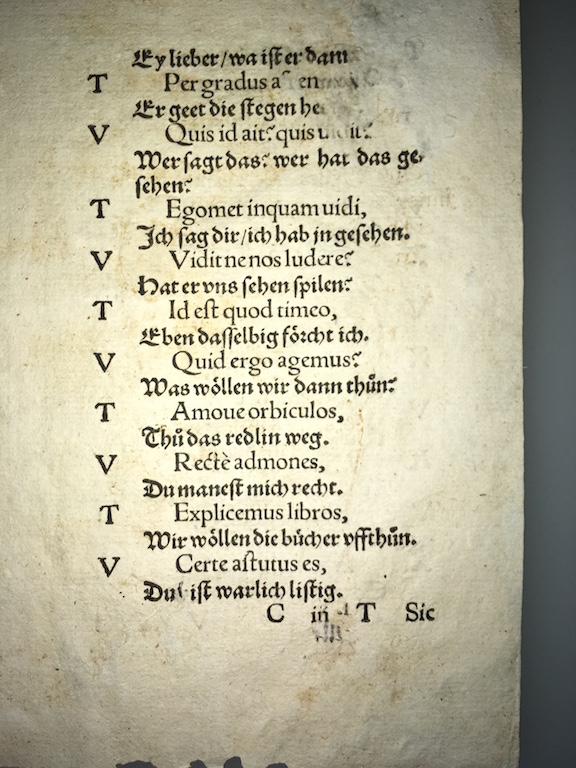 Ey lieber/wa ist er dann
T Per gradus
Er geet die stegen
V Quis id ait? quis
Wer sagt das? wer hat das ge-
sehen?
T Egomet inquam uidi,
Ich sag dir/ich hab jn gesehen.
V Viditne nos ludere?
Hat er vns sehen spilen?
T Id est quod timeo,
Eben dasselbig förcht ich.
V Quid ergo agemus?
Was wöllen wir dann thůn?
T Amoue orbiculos,
Thů das redlin weg.
V Rectè admones,
Du manest mich recht.
T Explicemus libros,
Wir wöllen die bücher vffthůn.
V Certe astutus es,
Du ist warlich listig.
C iii T Sic